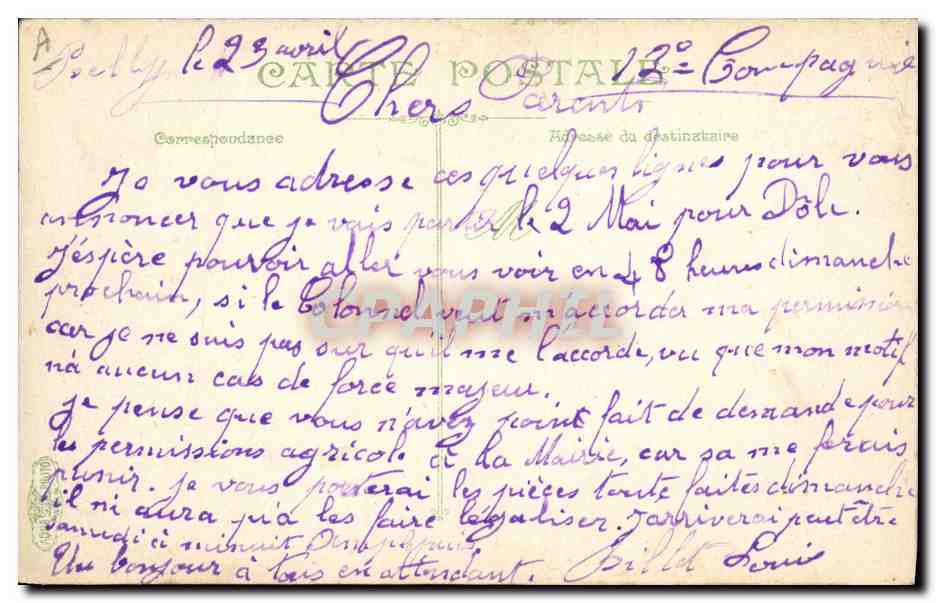 le 23 avril 12e Compagnie
CARTE POSTALE
Chers Parents
Correspondance Adresse du destinataire
Je vous adresse ces quelques lignes pour vous
annoncer que je vais partir le 2 Mai pour Dôle.
J'éspère pouvoir aller vous voir en 48 heures dimanche
prochain, si le Colonel veut m'accorder ma permission
CPAPHIL
car je ne suis pas sur qu'il me l'accorde, vu que mon motif
n'a aucun cas de force majeur.
Je pense que vous n'avez point fait de demande pour
les permissions agricole à la Mairie, car sa me ferais
punir. Je vous porterai les pièces toute faites dimanche
il ni aura pà les faire légaliser. J'arriverai peut être
samedi à minuit
Un bonjour à tous en attendant. Billet Louis